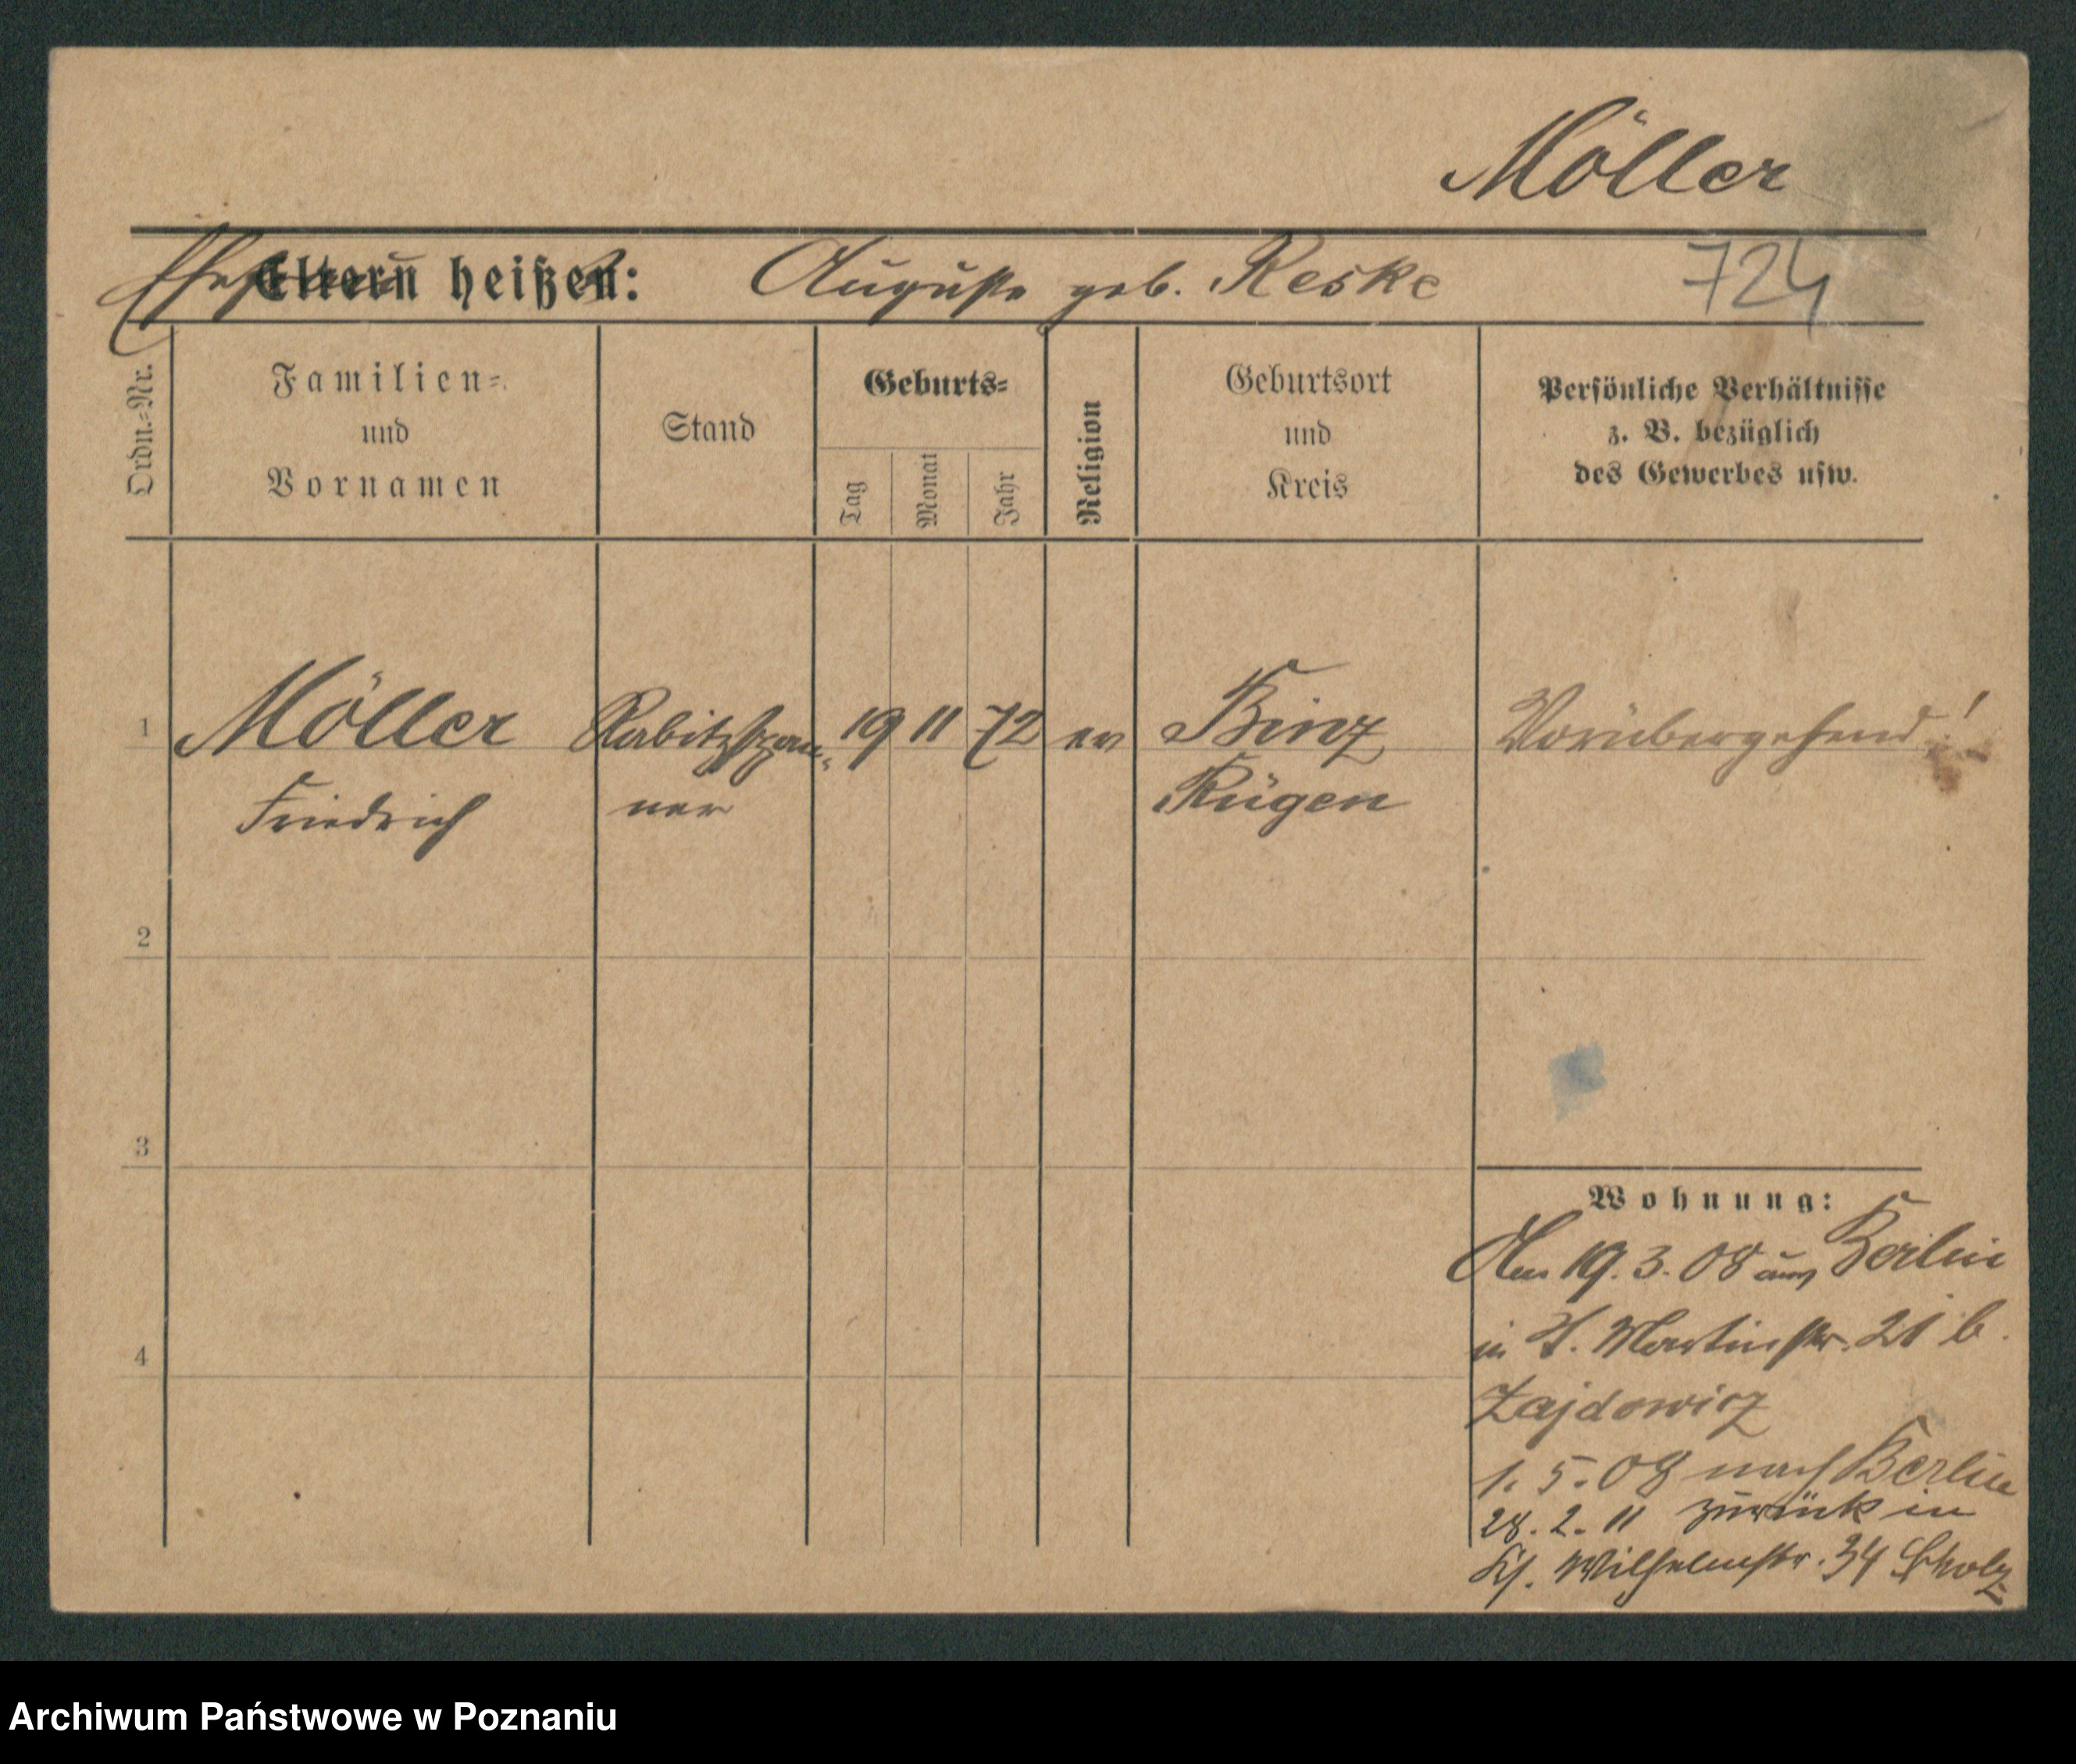 Möller
Ehefrau
Eltern heißen: Auguste geb. Reske 724
Ordn.=Nr.
Familien=
und
Vornamen
Stand
Geburts=
Tag
Monat
Jahr
Religion
Geburtsort
und
Kreis
Persönliche Verhältnisse
z. B. bezüglich
des Gewerbes usw.
1 Möller Rabitzspan- 19 11 72 ev Binz Vorübergehend!
Friedrich ner Rügen
2
3
4
Wohnung:
Am 19. 3. 08 aus Berlin
in St. Martinstr. 21 b.
Zajdowicz
1. 5. 08 nach Berlin
28. 2. 11 zurück in
Wilhelmstr. 34 Scholz
Archiwum Państwowe w Poznaniu